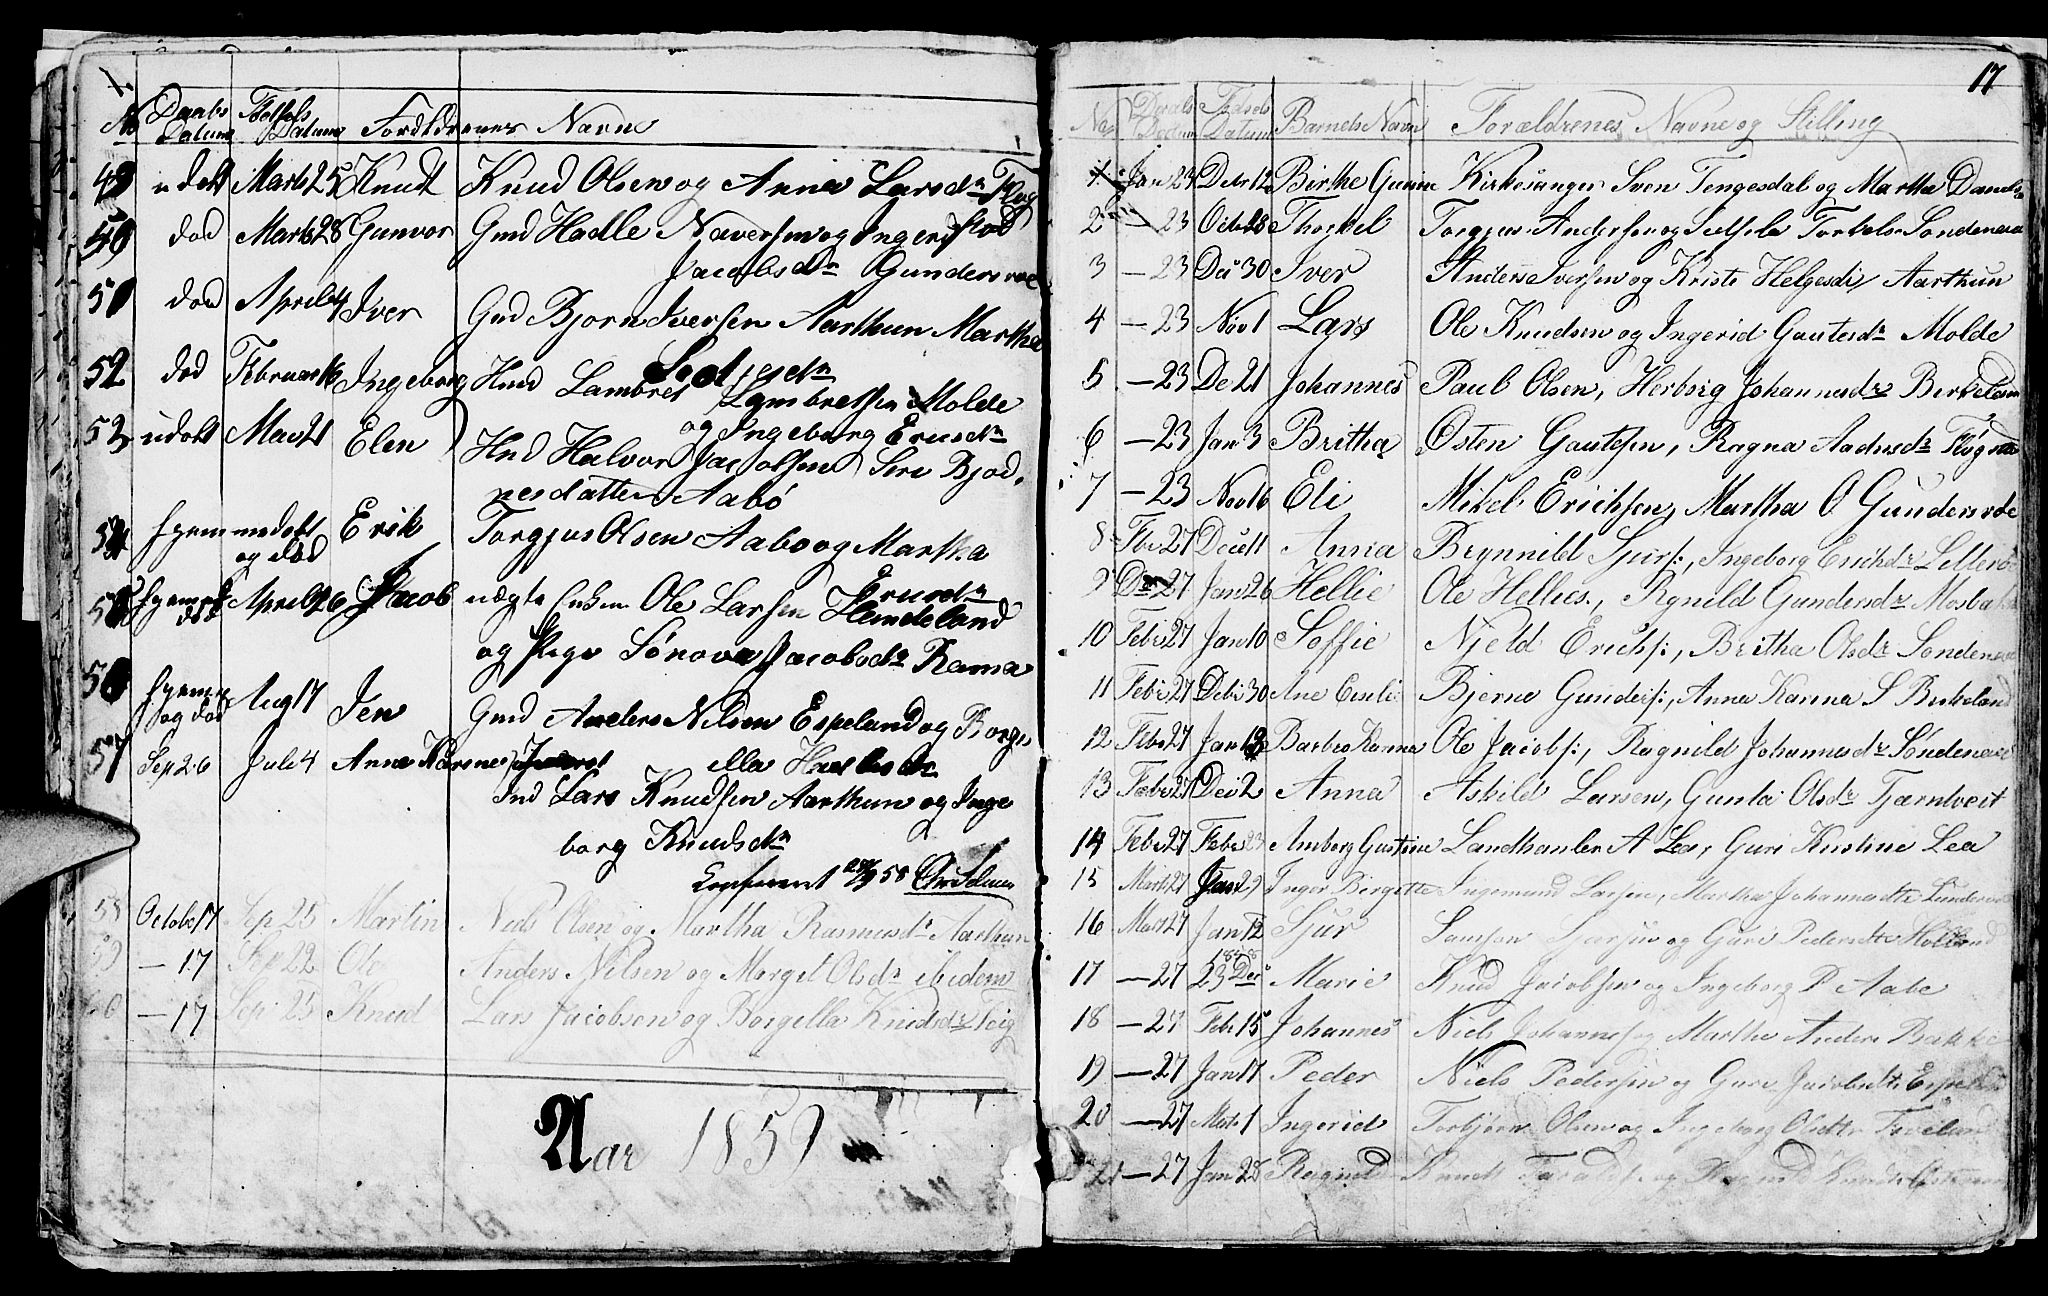 No Daabs Datum Fødsels Datum Forældrenes Navne
49 udøbt Marts 25 Knudt Knud Olsen og Anna Larsdr Flog
stad
50 død Marts 28 Gunvor Gmd Hadle Naversen og Ingerid
Jacobsdr Gundersvoe
51 død April 4 Iver Gmd Bjorn Iversen Aarthun Martha
52 død Februar 16 Ingeborg Hmd Lambret Lambretsen Molde
og Ingeborg Ericsdr
53 udøbt Mai 21 Elen Hmd Halvor Jacobsen Siri Bjod
nesdatter Aabø
54 hjemmedøbt og død Erik Torgjus Olsen Aabo og Martha
Ericsdr
55 død April 26 Jacob uægte Ole Larsen Hemdeland
og Pige Sønova Jacobsdr Rama
56 og død Aug 17 Jen Gmd Anders Nilsen Espeland og Borge
ella
57 Sep 26 Juli 4 Anna Karene
Ind Lars Knudsen Aarthun og Inge
borg Knudsdr
Conferent 58
58 Octobr 17 Sep 25 Martin Niels Olsen og Martha Rasmusdr Aarthun
59 — 17 Sep 22 Ole Anders Nilsen og Marget Olsdr ibidem
60 — 17 Sep 25 Knud Lars Jacobsen og Borgella Knudsdr Teig
Aar 1859
17
No Daabs Datum Fødsels Datum Barnets Navn Forældrenes Navne og Stilling
1 Jan 23 Debr 12 Birthe Gurine Kirkesanger Sven Tengesdal og Martha Daniels
2 — 23 Octb 28 Thorkel Torgjus Andersen og Torkels Søndenaa
3 — 23 De 30 Iver Anders Iversen og Kriste Helgesdr Aarthun
4 — 23 Nov 1 Lars Ole Knudsen og Ingerid Gautesdr Molde
5 — 23 De 21 Johannes Paul Olsen, Herborg Johannesdr Birkeland
6 — 23 Jan 3 Britha Østen Gautesen, Ragna Aadnesdr
7 — 23 Nov 16 Eli Mikel Erichsen, Martha O Gundersvoe
8 Fbr 27 Dece 11 Anna Brynnild Sjurs:, Ingeborg Erichdr
9 Do 27 Jan 26 Hellie Ole Hellies., Rgnild Gundersdr
10 Febr 27 Jan 10 Soffie Njeld Erichs:, Britha Olsdr Søndenaa
11 Febr 27 Debr 30 Ane Bjerne Gunders:, Anna Karina S Birkeland
12 Febr 27 Jan 13 Barbro Karina Ole Jacobs:, Ragnild Johannesdr Søndenaa
13 Febr 27 Dei 2 Anna Askild Larsen, Gunla Olsdr Tjerntveit
14 Febr 27 Febr 23 Amborg Gustine Landhanler A Lea, Guri Kristine Lea
15 Mart 27 Jan 29 Inger Birgitte Ingemund Larsen, Martha Johannesdtr
16 Mart 27 Jan 12 Sjur Samson og Guri Pedersdtr
17 — 27 23 Der Marie Knud Jacobsen og Ingeborg P Aabe
18 — 27 Febr 15 Johannes Niels Johannes og Martha Anders Bakke
19 — 27 Jan 17 Peder Niels Pedersen og Guri Jacobsdtr
20 — 27 Mrts 1 Ingerid Torbjørn Olsen og Ingeborg Olsdtr
21 — 27 Jan 28 Ragnild Knud